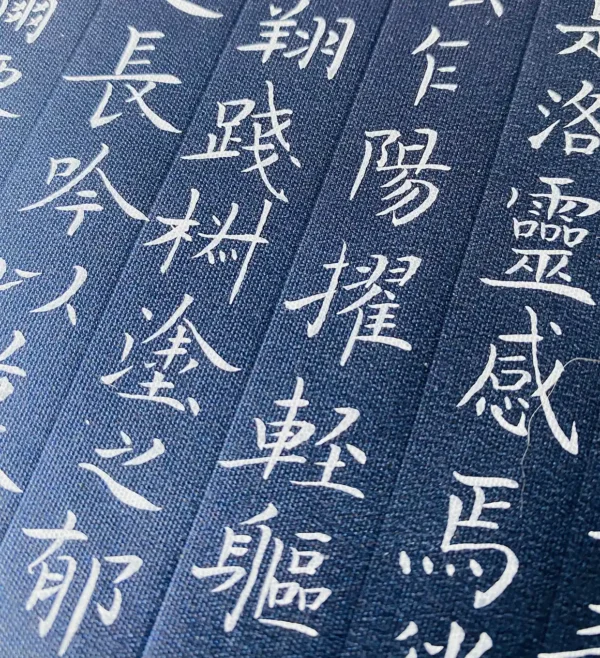 是洛靈感焉
乍陽擢軽軀
翔踐椒塗之郁
長吟以